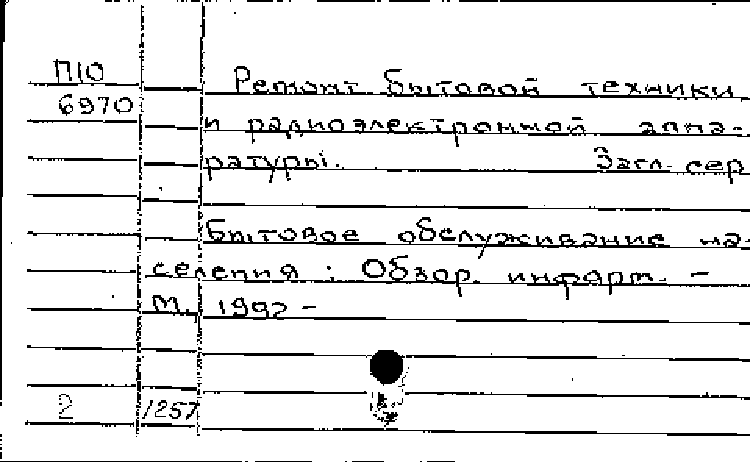 П10
6970
Ремонт бытовой техники
и радиоэлектронной аппа-
ратуры. Загл. сер
Бытовое обслуживание на-
селения : Обзор. информ. -
М., 1992 -
2 1257